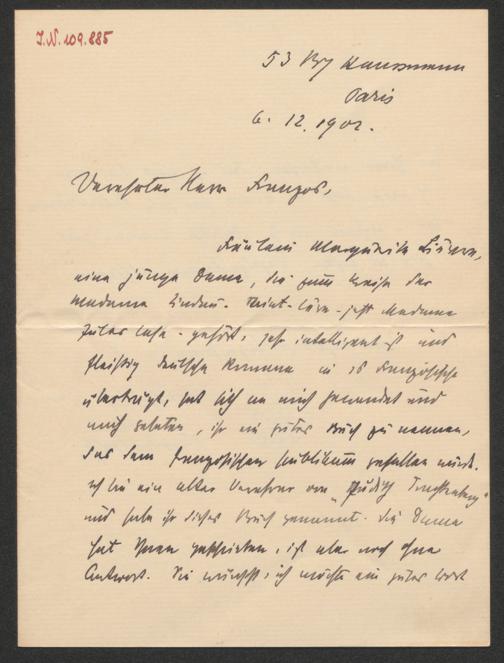 J.N. 109.885
53 Bd Haussmann
Paris
6. 12. 1902.
Verehrter Herr Franzos,
Fräulein Marguerite
eine junge Dame, die zum Kreise der
Madame
Jules - gehört, sehr intelligent ist und
fleißig deutsche Romane in's Französische
überträgt, hat sich an mich gewendet und
mich gebeten, ihr ein gutes Buch zu nennen,
das dem französischen Publikum gefallen würde.
Ich bin ein alter Verehrer von "Judith Trachtenberg"
und habe ihr dieses Buch genannt. Die Dame
hat Ihnen geschrieben, ist aber noch ohne
Antwort. Sie wünscht, ich möchte ein gutes Wort